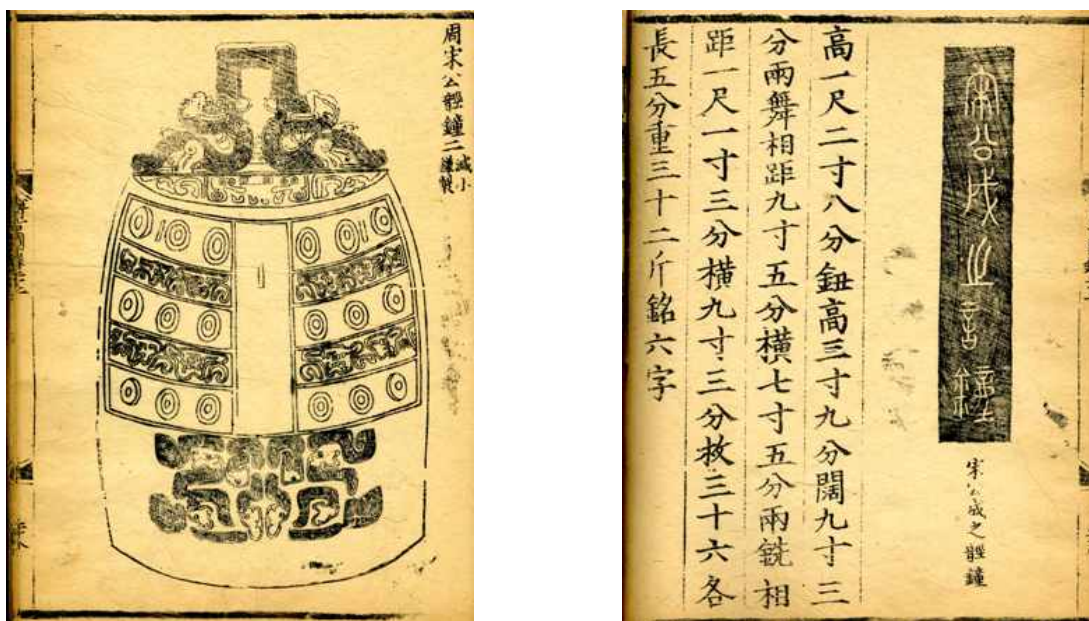 周宋公䪫鐘二 減小樣製
宋公成之䪫鐘
宋公成之䪫鐘
高一尺二寸八分鈕高三寸九分闊九寸三
分兩舞相距九寸五分橫七寸五分兩銑相
距一尺一寸三分橫九寸三分枚三十六各
長五分重三十二斤銘六字